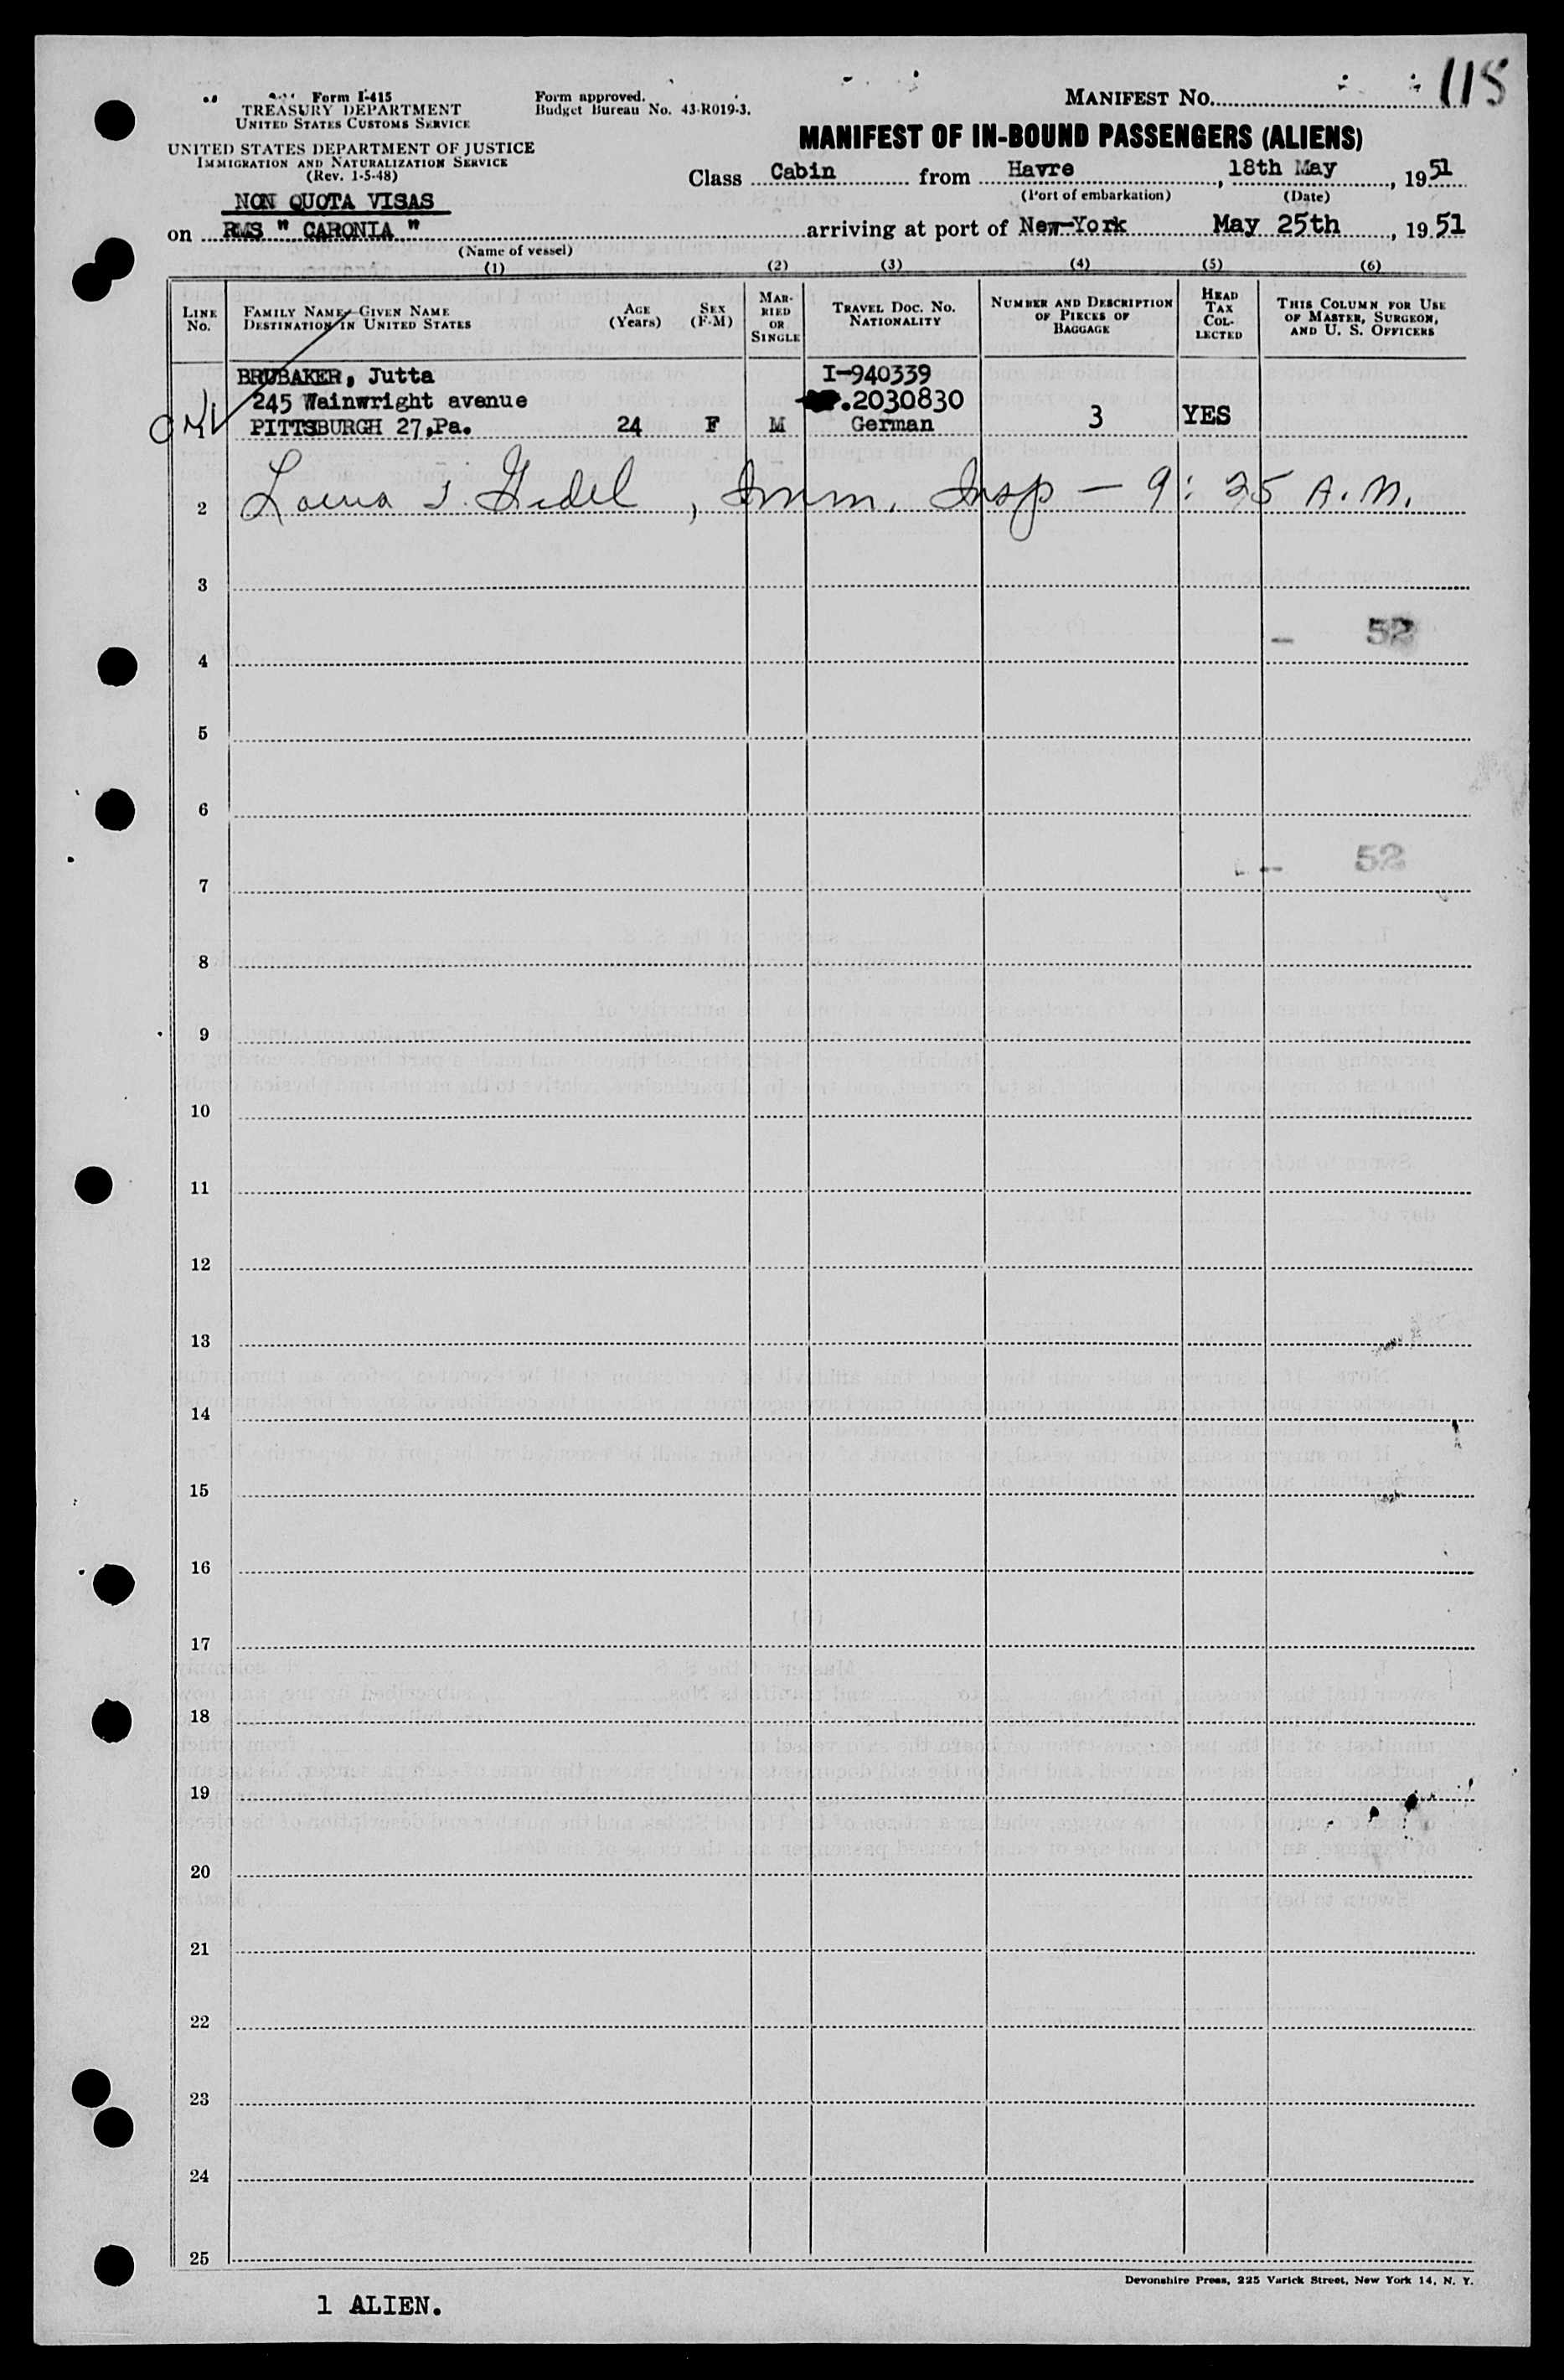 115
Form I-415
TREASURY DEPARTMENT
UNITED STATES CUSTOMS SERVICE
UNITED STATES DEPARTMENT OF JUSTICE
IMMIGRATION AND NATURALIZATION SERVICE
(Rev. 1-5-48)
Form approved.
Budget Bureau No. 43-R019-3.
MANIFEST NO.
MANIFEST OF IN-BOUND PASSENGERS (ALIENS)
Class Cabin from Havre, 18th May, 1951
(Port of embarkation) (Date)
NON QUOTA VISAS
on RMS " CARONIA " arriving at port of New-York May 25th, 1951
(Name of vessel)
(1) (2) (3) (4) (5) (6)
LINE NO.
FAMILY NAME, GIVEN NAME
DESTINATION IN UNITED STATES
AGE (Years)
SEX (F-M)
MARRIED OR SINGLE
TRAVEL DOC. NO.
NATIONALITY
NUMBER AND DESCRIPTION OF PIECES OF BAGGAGE
HEAD TAX COLLECTED
THIS COLUMN FOR USE OF MASTER, SURGEON, AND U. S. OFFICERS
BRUBAKER, Jutta I-940339
245 Wainwright avenue .2030830
PITTSBURGH 27,Pa. 24 F M German 3 YES
2 , Imm. Insp — 9:25 A.M.
3
52
4
5
6
52
7
8
9
10
11
12
13
14
15
16
17
18
19
20
21
22
23
24
25
Devonshire Press, 225 Varick Street, New York 14, N. Y.
1 ALIEN.